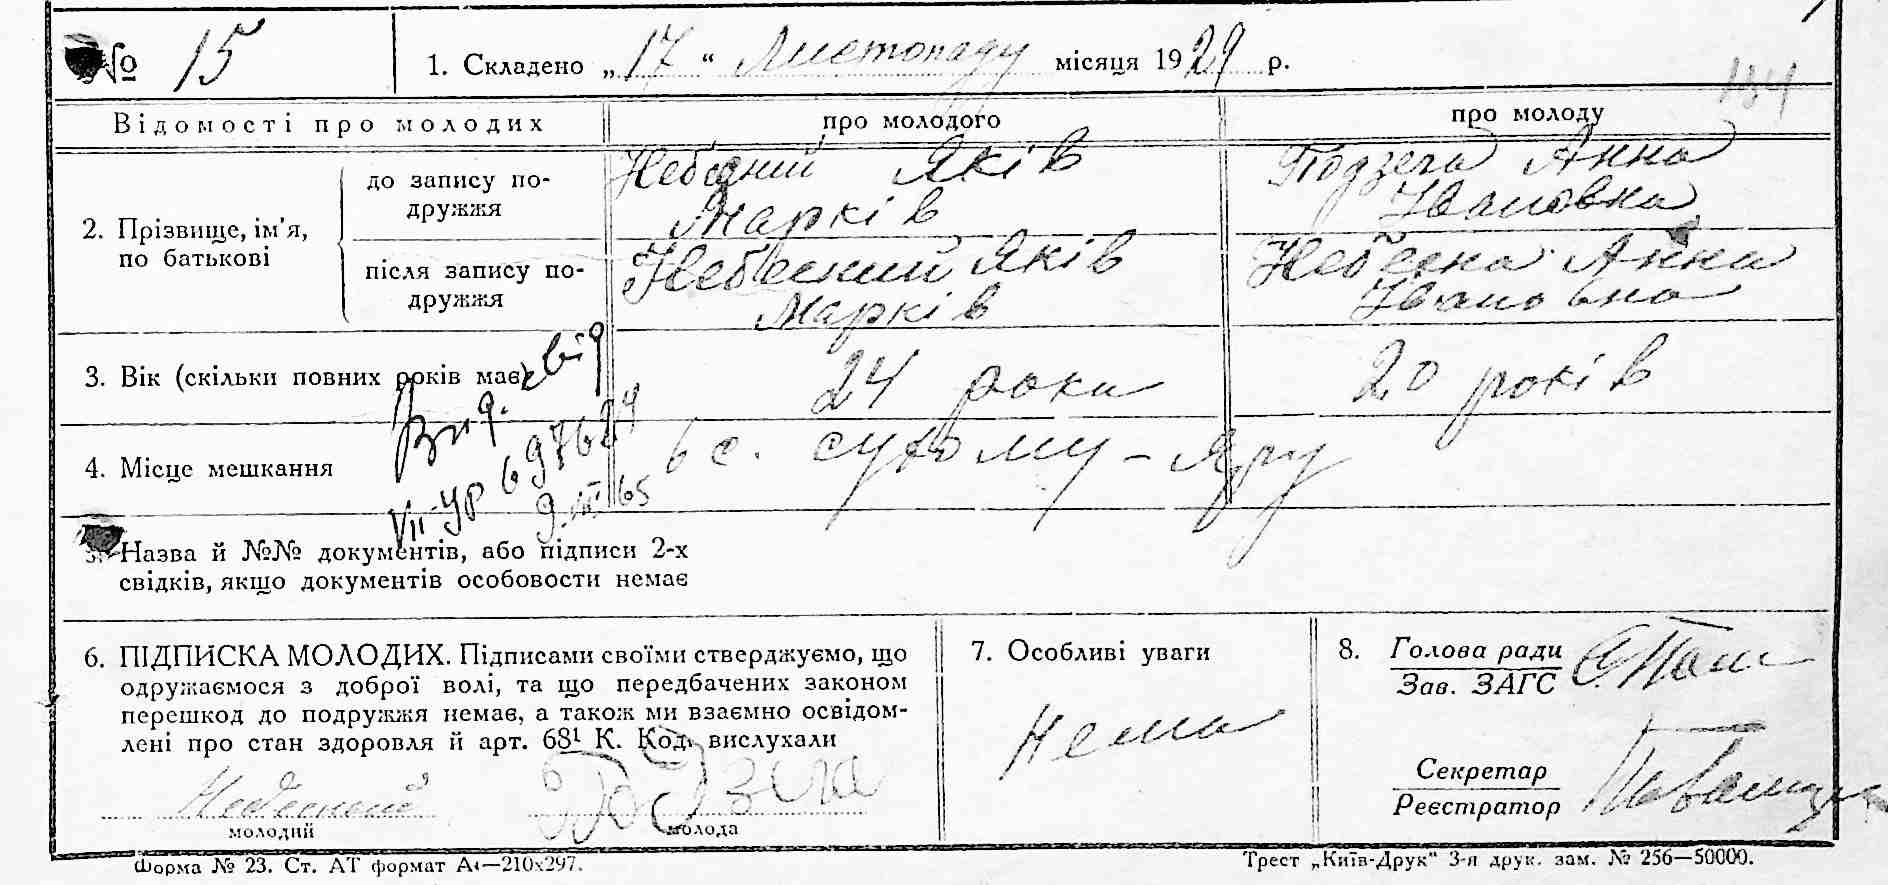 № 15
1. Складено „17“ Листопаду місяця 1929 р.
184
Відомості про молодих про молодого про молоду
2. Прізвище, ім'я, по батькові
до запису по-
дружжя
Небесний Яків
Марків
Подзега Анна
Івановна
після запису по-
дружжя
Небесний Яків
Марків
Небесна Анна
Івановна
3. Вік (скільки повних років має) 24 роки 20 років
4. Місце мешкання в с. сухому-Яру
Вид. свід
VII-УР 697689
9.III 65
5. Назва й №№ документів, або підписи 2-х
свідків, якщо документів особовости немає
6. ПІДПИСКА МОЛОДИХ. Підписами своїми стверджуємо, що
одружаємося з доброї волі, та що передбачених законом
перешкод до подружжя немає, а також ми взаємно освідом-
лені про стан здоровля й арт. 68¹ К. Код. вислухали
Небесний Подзега
молодий молода
7. Особливі уваги
Нема
8. Голова ради
Зав. ЗАГС
Секретар
Реєстратор
Форма № 23. Ст. АТ формат А4—210х297.
Трест „Київ-Друк“ 3-я друк. зам. № 256—50000.